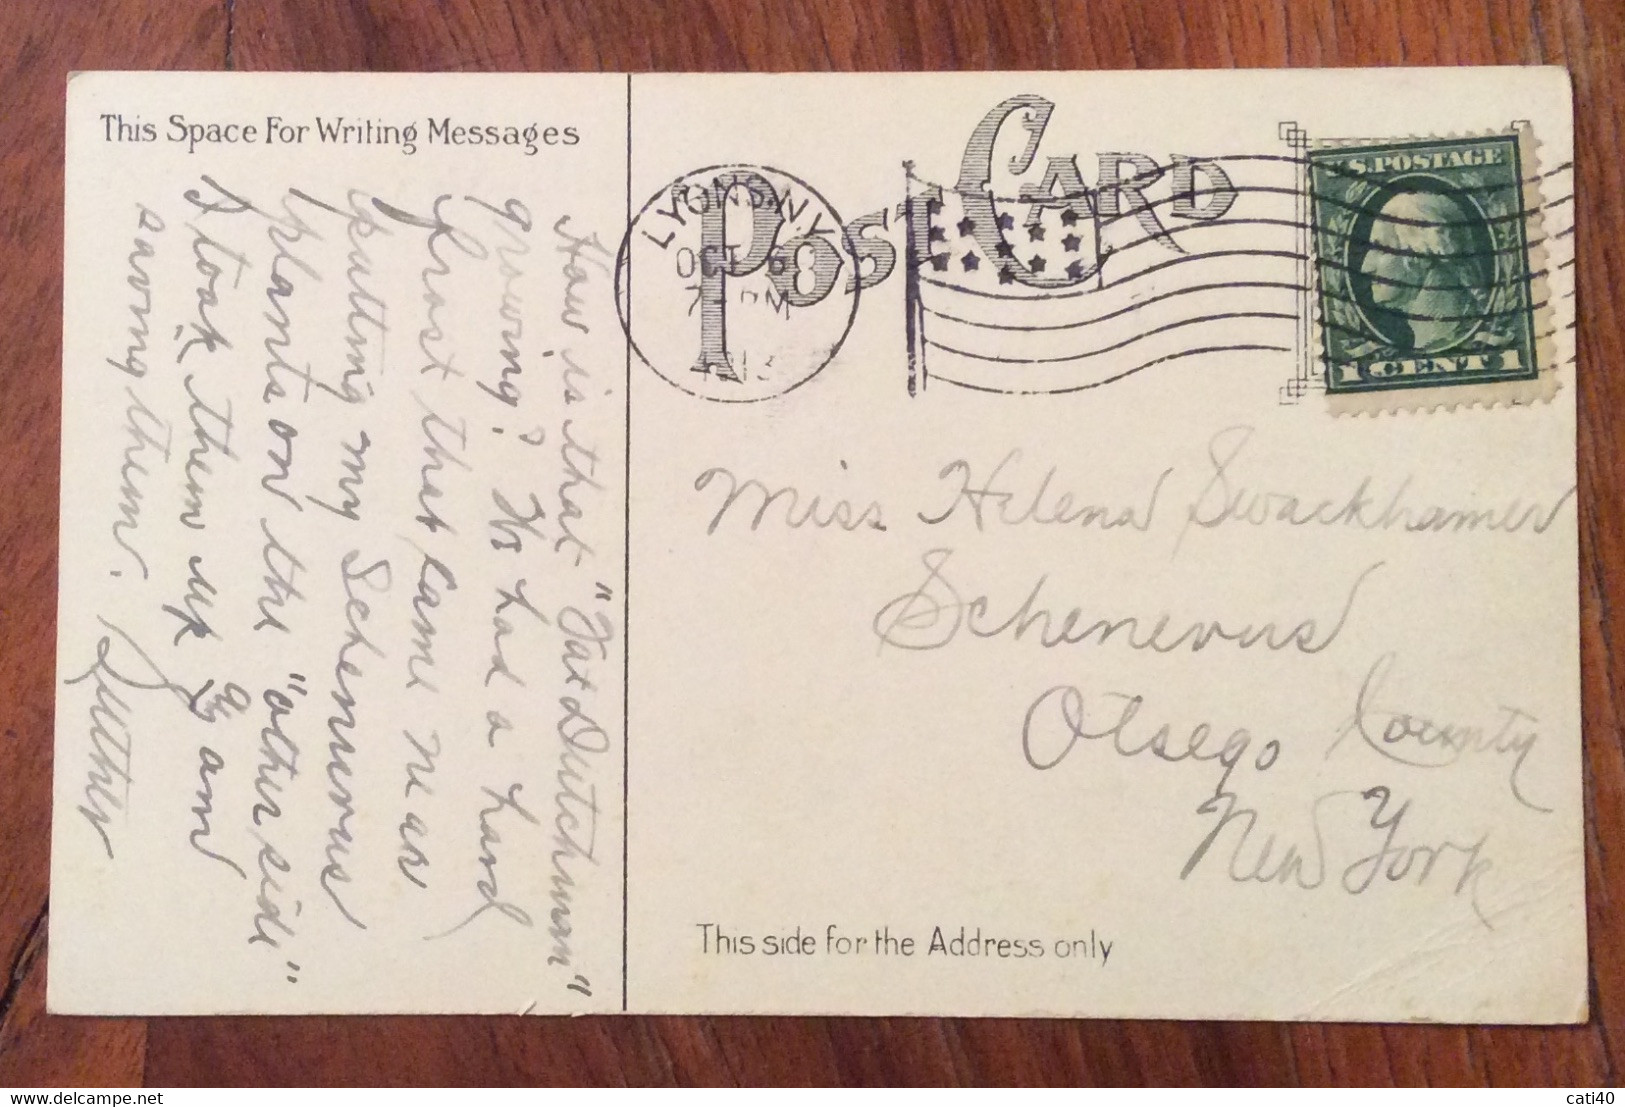 This Space For Writing Messages
How is that "Fat Dutchman"
growing? We had a hard
frost that came near
putting my Schenevus
plants on the "other side"
I took them up & am
saving them.
POST CARD
LYONS N.Y.
OCT 6
PM
1913
U.S. POSTAGE
1 CENT 1
Miss Helena Swackhamer
Schenevus
Otsego County
New York
This side for the Address only
cati40